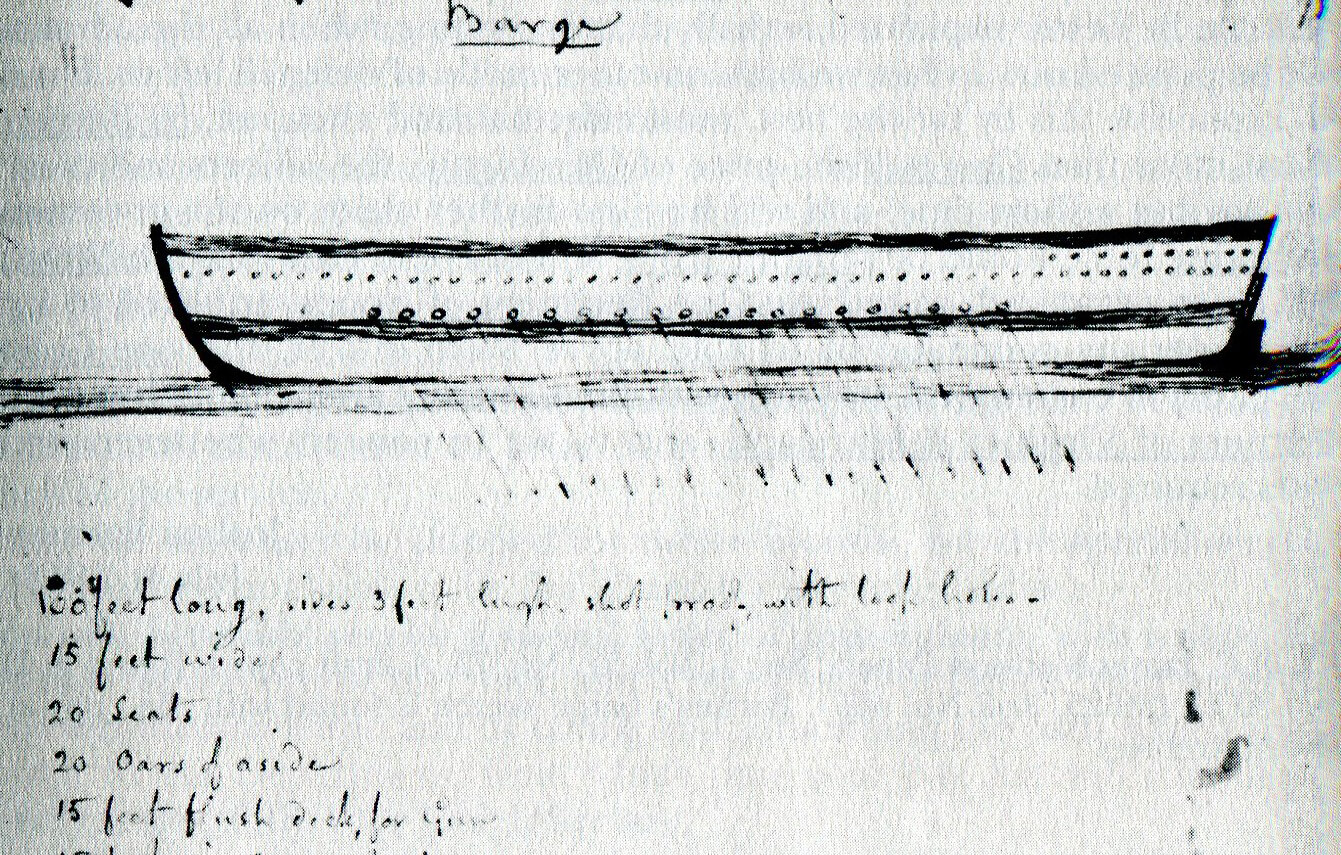 Barge
100 feet long, sides 3 feet high, shot proof, with loop holes -
15 feet wide
20 Seats
20 Oars of a side
15 feet flush deck, for Gun